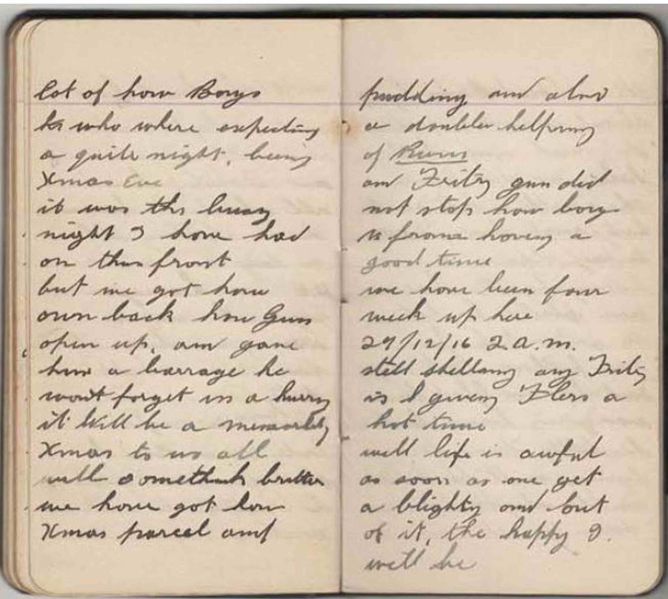 lot of how Boys
who where expecting
a quite night, being
Xmas Eve
it was ths busy
night I have had
on this front
but we got how
own back how Guns
open up, am gave
him a barrage he
wont forget in a hurry
it will be a memorably
Xmas to us all
well somethink better
we have got how
Xmas parcel and
pudding and also
a doubler helping
of Rum
an Fritz gun did
not stop how boys
from having a
good time
we have been four
week up here
29/12/16 2 a.m.
still shelling any Fritz
is giving Flers a
hot time
well life is awful
as soon as one get
a blighty and out
of it, the happy I
will be